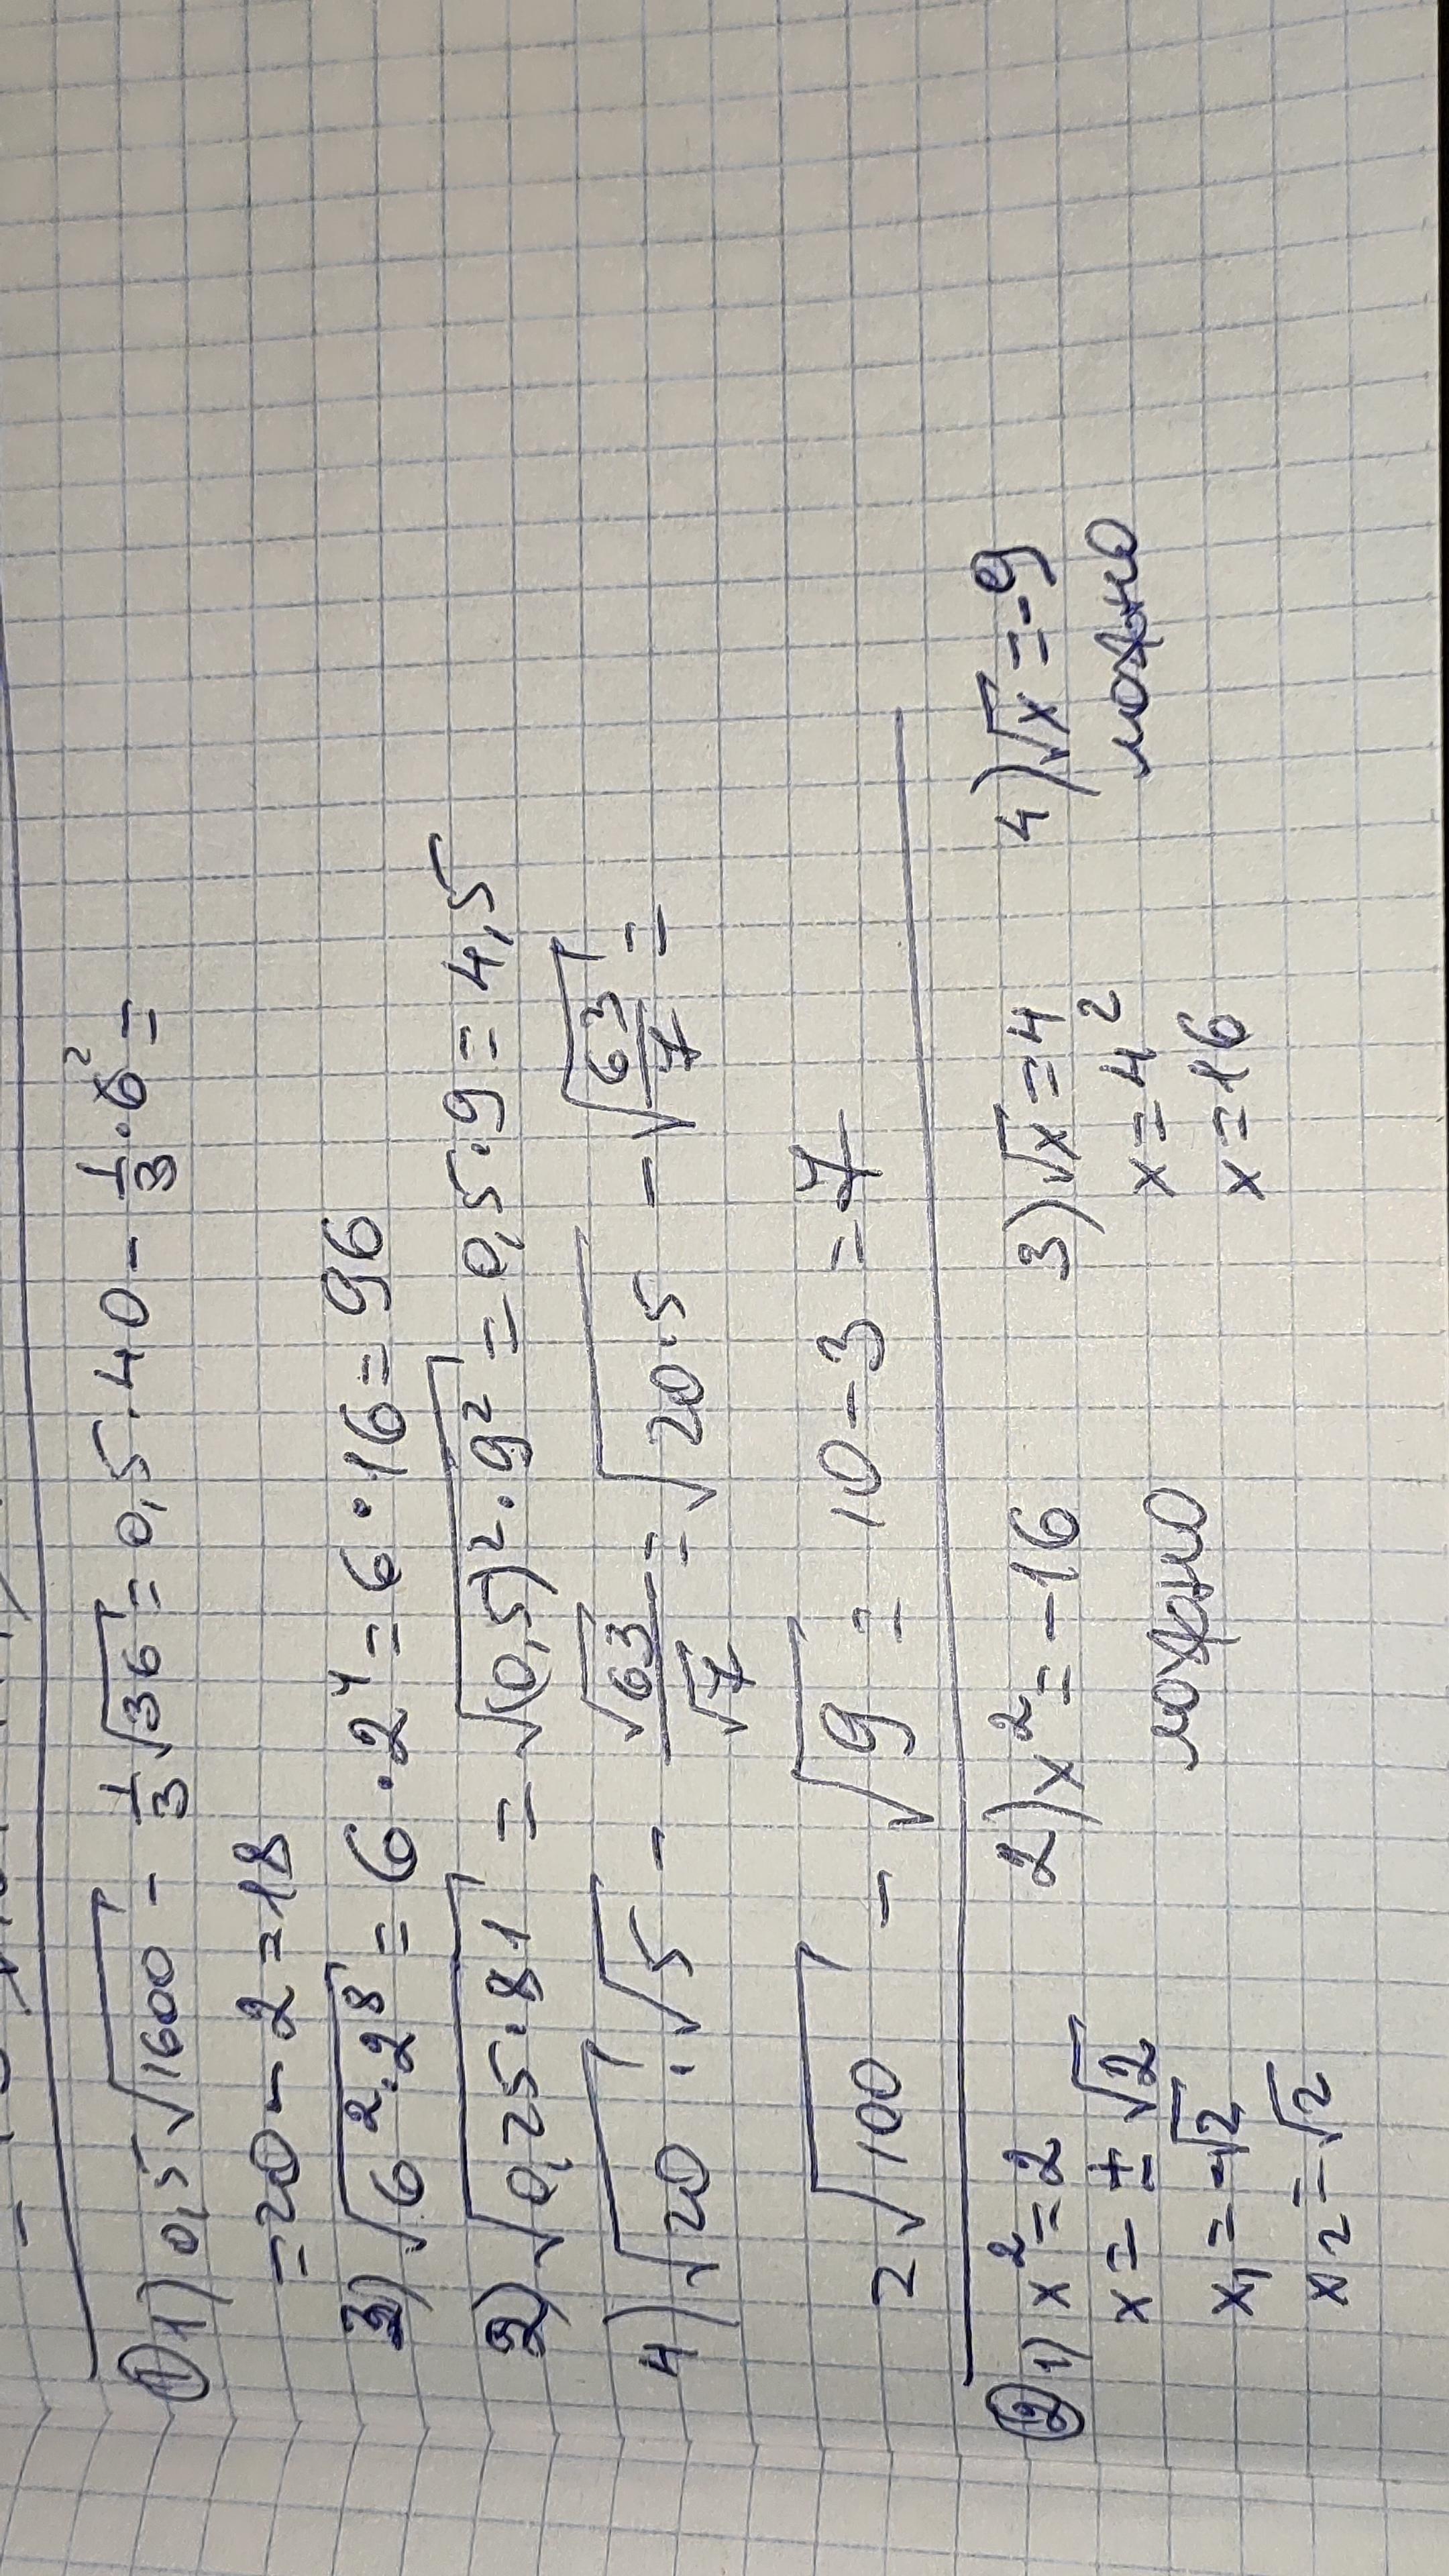 ① 1) 0,5√1600 - 1/3 √36 = 0,5 · 40 - 1/3 · 6² =
= 20 - 2 = 18
3) √6²·2⁸ = 6 · 2⁴ = 6 · 16 = 96
2) √0,25·81 = √(0,5)²·9² = 0,5·9 = 4,5
4) √20 · √5 - √63/√7 = √20·5 - √63/7 =
2√100 - √9 = 10 - 3 = 7
② 1) x² = 2
x = ±√2
x₁ = -√2
x2 = √2
2) x² = -16
можно
3) √x = 4
x = 4²
x = 16
4) √x = -9
можно